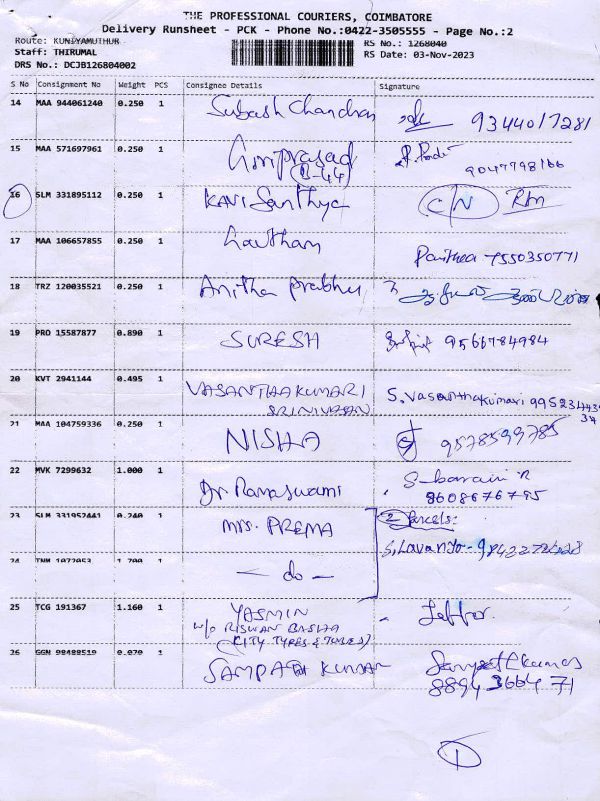 THE PROFESSIONAL COURIERS, COIMBATORE
Delivery Runsheet - PCK - Phone No.:0422-3505555 - Page No.:2
Route: KUNIYAMUTHUR
Staff: THIRUMAL
DRS No.: DCJB126804002
RS No.: 1268040
RS Date: 03-Nov-2023
S No Consignment No Weight PCS Consignee Details Signature
14 MAA 944061240 0.250 1 Subash Chandran 9344017281
15 MAA 571697961 0.250 1 Guruprasad
(B-44) 9047798166
16 SLM 331895112 0.250 1 KAVI Santhya C/N Rtn
17 MAA 106657855 0.250 1 Gautham Pavithra 7550350771
18 TRZ 120035521 0.250 1 Anitha Prabhu
19 PRO 15587877 0.890 1 SURESH 9566784984
20 KVT 2941144 0.495 1 VASANTHAKUMARI S. Vasanthakumari
SRINIVASAN
21 MAA 104759336 0.250 1 NISHA 9578599785
22 MVK 7299632 1.000 1 Dr Ramaswami
8608676795
23 SLM 331952441 0.240 1 Mrs. PREMA 2 Parcels:
S, Lavanya
24 TNM 1072053 1.700 1 - do -
25 TCG 191367 1.160 1 YASMIN
W/o RISWAN BASHA
(CITY TYPES & TUBES)
26 GGN 98488519 0.070 1 SAMPATH KUMAR Sampathkumar
8894366471
1